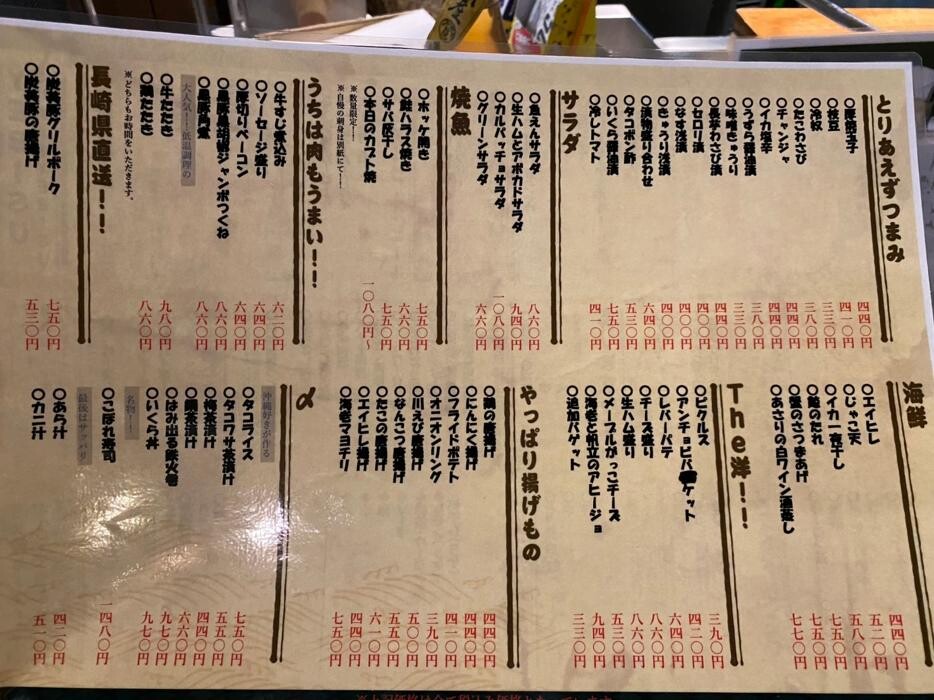 とりあえずつまみ
〇厚焼玉子 四四〇円
〇枝豆 四一〇円
〇冷奴 三三〇円
〇たこわさび 三八〇円
〇チャンジャ 四四〇円
〇イカ塩辛 四四〇円
〇うずら醤油漬 三八〇円
〇味噌きゅうり 三三〇円
〇長芋わさび漬 三三〇円
〇セロリ漬 四四〇円
〇なす浅漬 四四〇円
〇きゅうり浅漬 四四〇円
〇漬物盛り合わせ 六四〇円
〇タコポン酢 五三〇円
〇いくら醤油漬 七五〇円
〇冷しトマト 四一〇円
サラダ
〇魚えんサラダ 八六〇円
〇生ハムとアボカドサラダ 九四〇円
〇カルパッチョサラダ 一〇八〇円
〇グリーンサラダ 八六〇円
焼魚
〇ホッケ開き 七五〇円
〇鮭ハラス焼き 六六〇円
〇サバ灰干し 七五〇円
〇本日のカブト焼 一〇八〇円～
※数量限定!!
※自慢の刺身は別紙にて!!
うちは肉もうまい!!
〇牛すじ煮込み 六二〇円
〇ソーセージ盛り 六四〇円
〇厚切りベーコン 六四〇円
〇黒豚黒胡椒ジャンボつくね 八六〇円
〇黒豚角煮 八六〇円
大人気!! 低温調理の
〇牛たたき 九八〇円
〇鶏たたき 八六〇円
※どちらもお時間をいただきます。
長崎県直送!!
〇炭美豚グリルポーク 七五〇円
〇炭美豚の唐揚げ 五三〇円
海鮮
〇エイヒレ 四四〇円
〇じゃこ天 五二〇円
〇イカ一夜干し 五八〇円
〇鮭のたれ 七五〇円
〇蟹のさつまあげ 七七〇円
〇あさりの白ワイン酒蒸し 七七〇円
The洋!!
〇ピクルス 三九〇円
〇アンチョビバケット 四二〇円
〇レバーパテ 六四〇円
〇チーズ盛り 八六〇円
〇生ハム盛り 八六〇円
〇メープルがっこチーズ 五三〇円
〇海老と帆立のアヒージョ 九四〇円
〇追加バゲット 三三〇円
やっぱり揚げもの
〇鶏の唐揚げ 四四〇円
〇にんにく揚げ 四四〇円
〇フライドポテト 四一〇円
〇オニオンリング 三九〇円
〇川えび唐揚げ 五〇〇円
〇なんこつ唐揚げ 五五〇円
〇たこの唐揚げ 六一〇円
〇エイヒレ唐揚げ 五五〇円
〇海老マヨチリ 七五〇円
〆
沖縄好きが作る
〇タコライス 七五〇円
〇タコワサ茶漬け 五五〇円
〇梅茶漬け 四四〇円
〇鯛茶漬け 六六〇円
〇はみ出る鉄火巻 九七〇円
〇いくら丼 九七〇円
名物!!
〇こぼれ寿司 一四八〇円
最後はサッパリ
〇あら汁 四二〇円
〇カニ汁 五一〇円